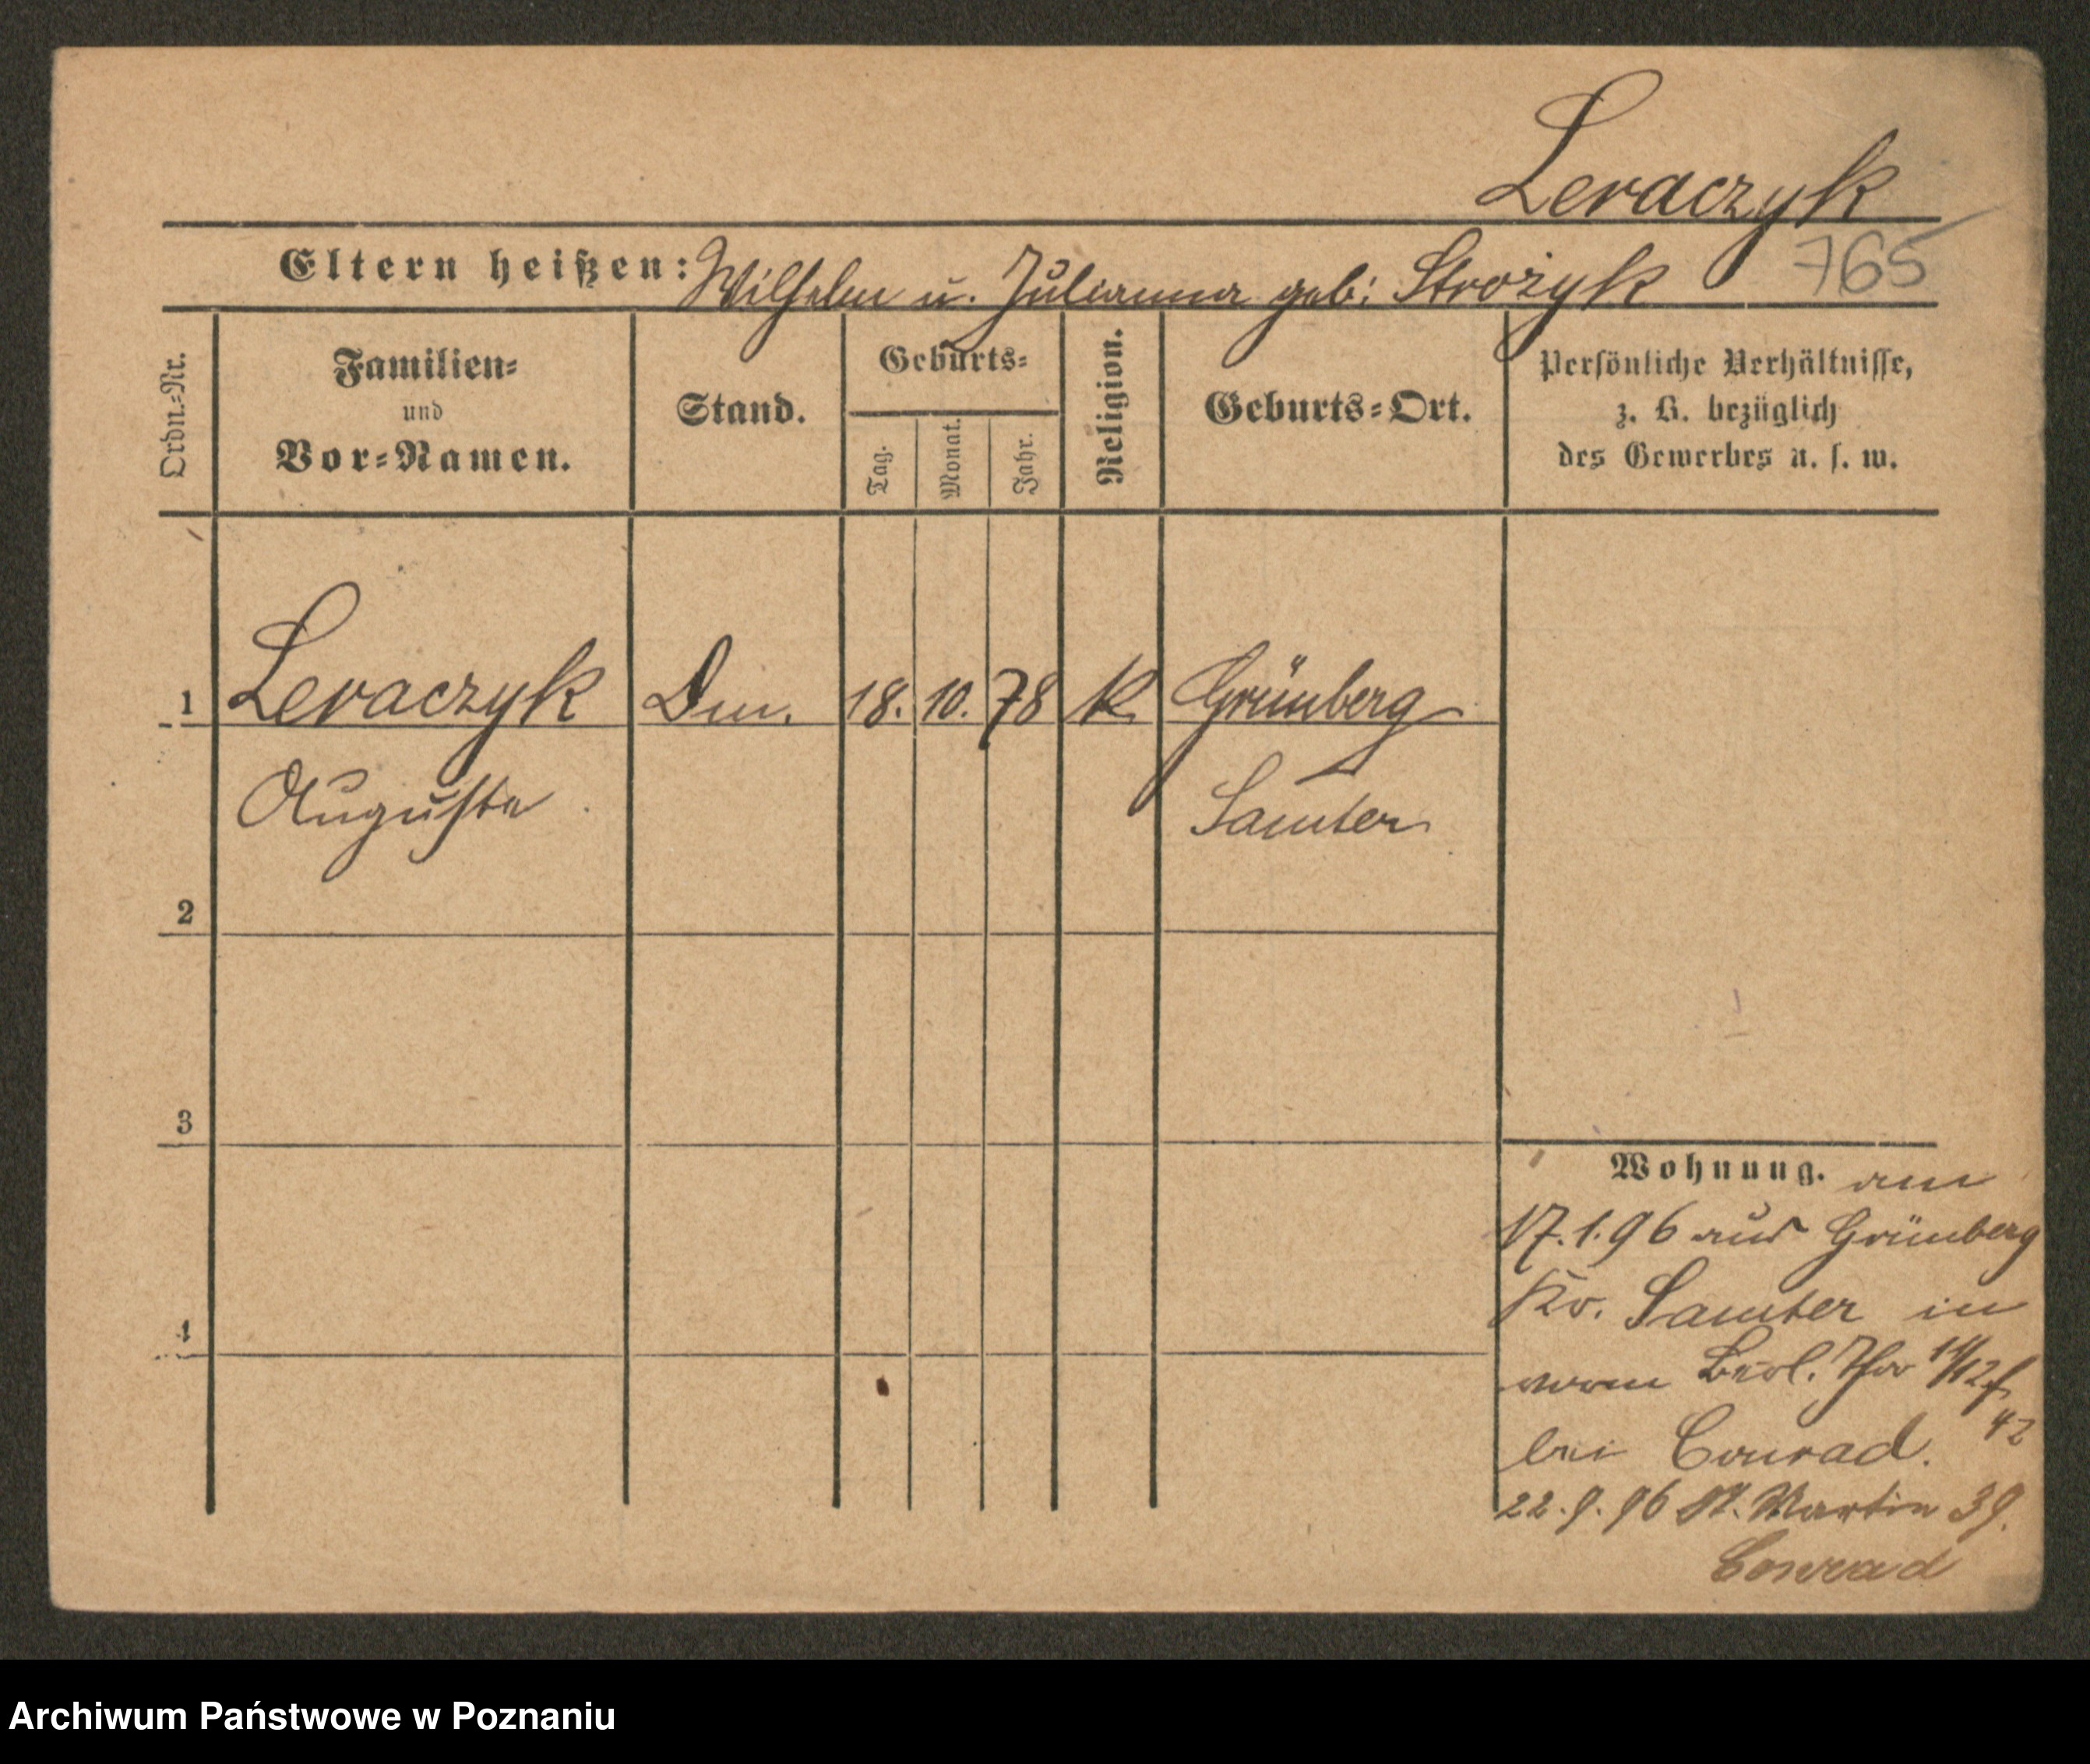 Leraczyk
Eltern heißen: Wilhelm u. Julianna geb: Strożyk
765
Ordn.-Nr.
Familien-
und
Vor-Namen.
Stand.
Geburts-
Tag.
Monat.
Jahr.
Religion.
Geburts-Ort.
Persönliche Verhältnisse,
z. B. bezüglich
des Gewerbes u. s. w.
1 Leraczyk Dm. 18. 10. 78 K Grünberg
Auguste Samter
2
3
4
Wohnung. am
17.1.96 aus Grünberg
Kr. Samter in
vorm Berl. Thor
bei Conrad. 42
22.9.96 St. Martin 39.
Conrad
Archiwum Państwowe w Poznaniu